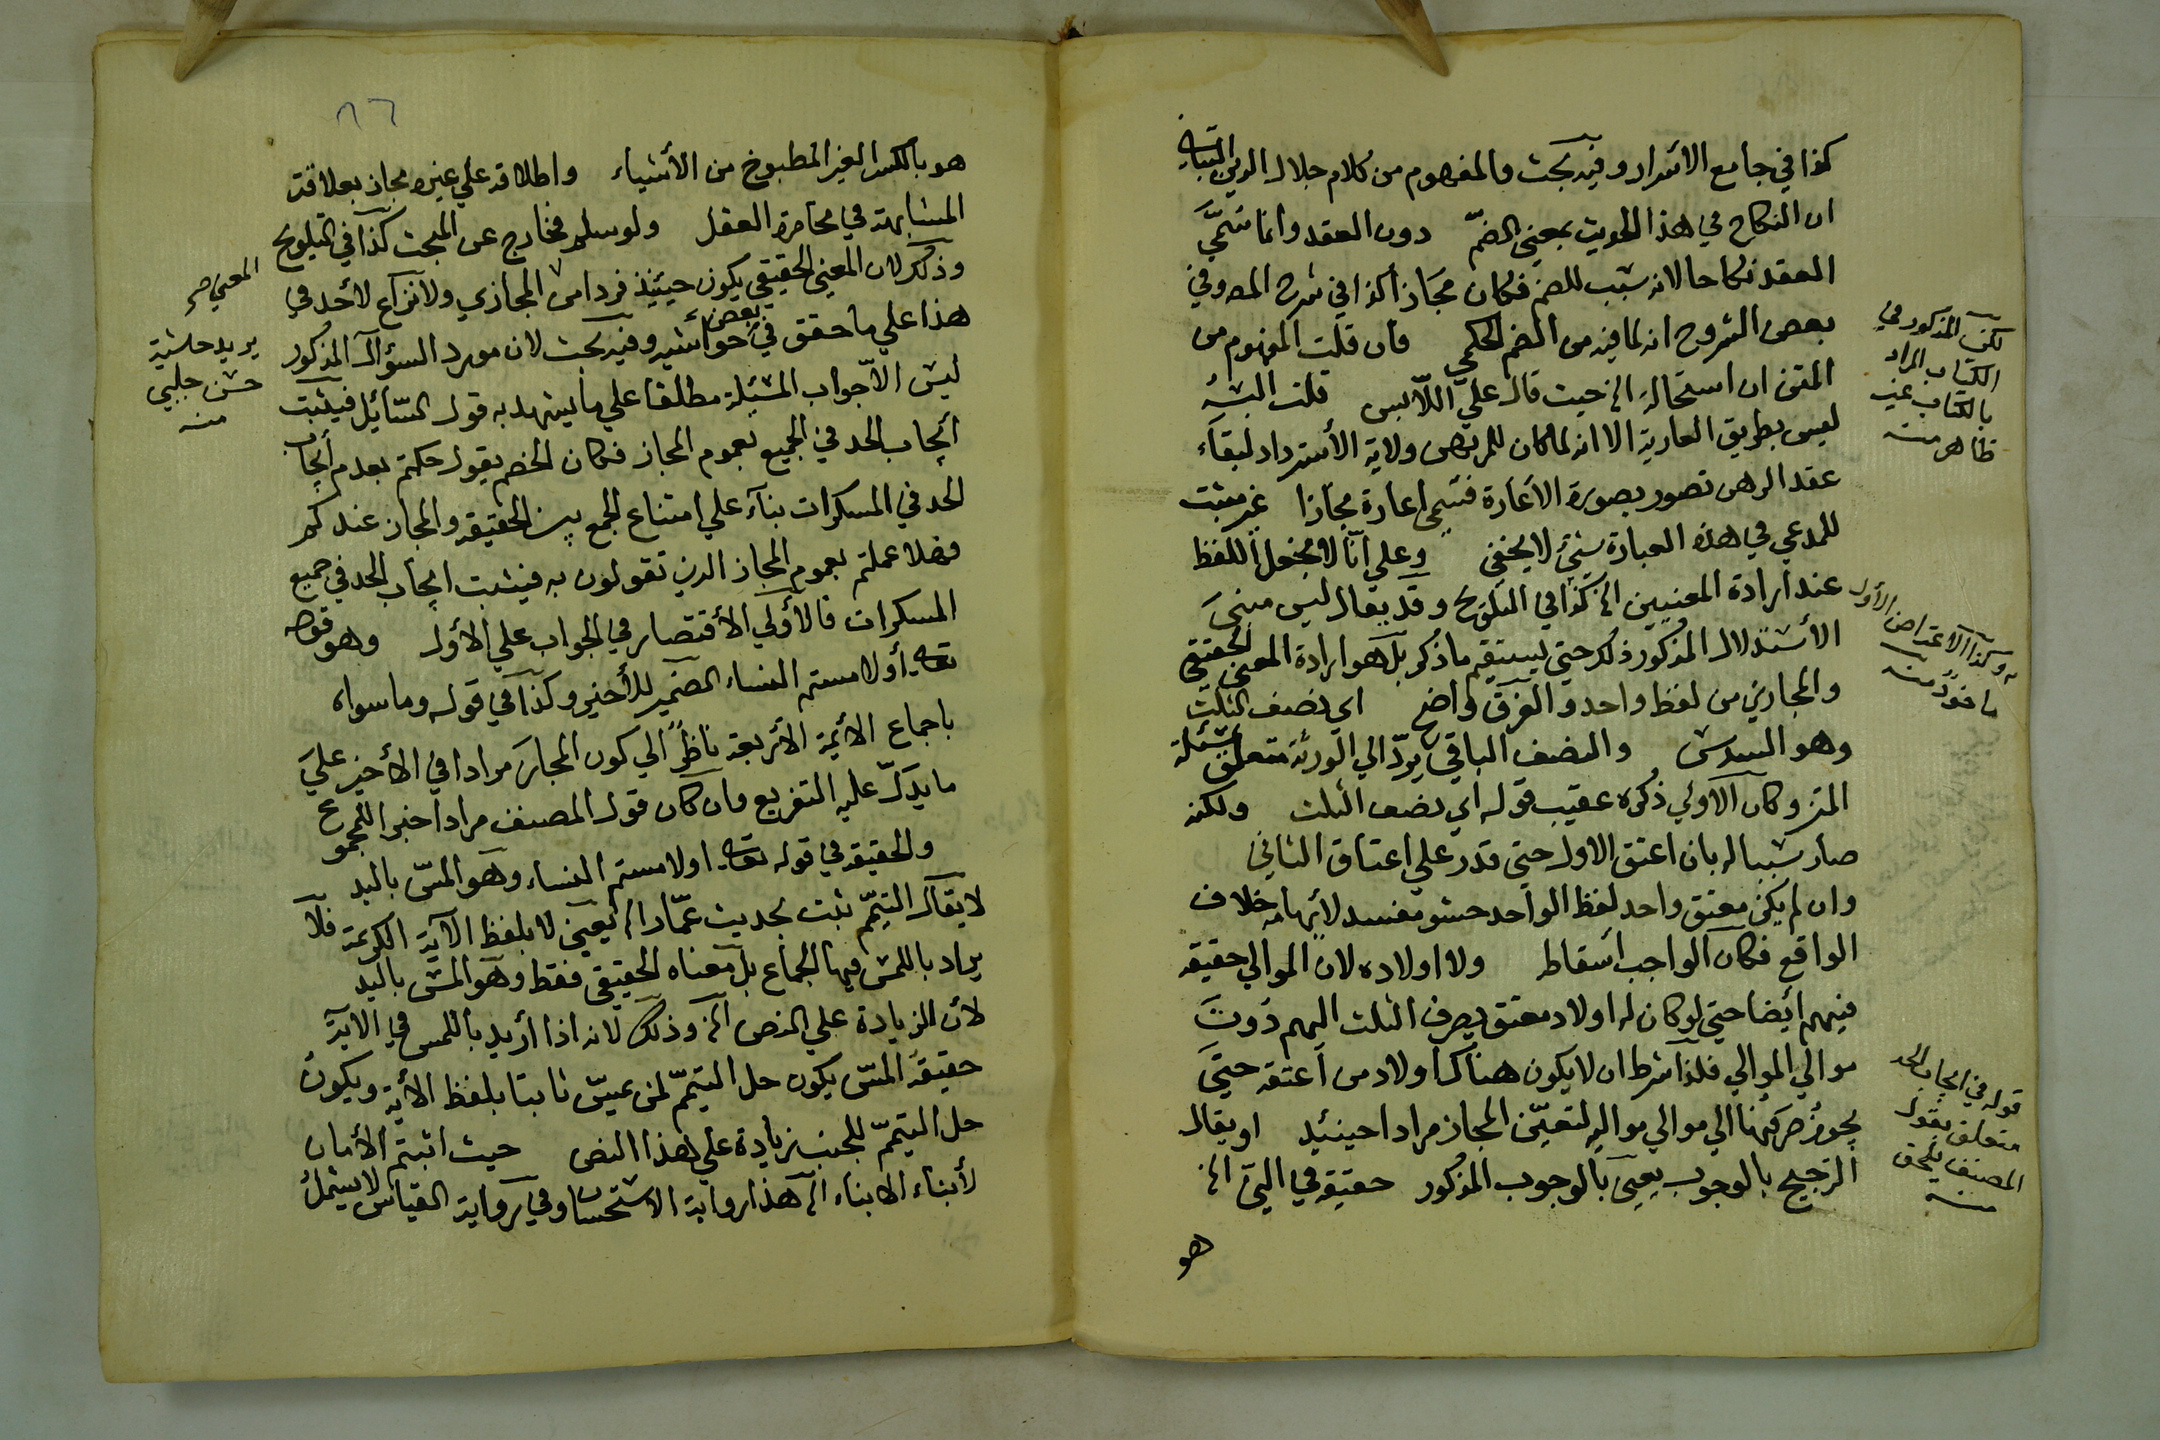 كذا في جامع الاسرار وفيه بحث والمفهوم من كلام جلال الدين التباني
ان النكاح في هذا الحديث بمعني الضمّ دون العقد وانما سمّي
العقد نكاحا لانه سبب للضم فكان مجازا كذا في شرح المصر وفي
بعض الشروح انه لما فيه من الضم الحكمي فان قلت المفهوم من
المتن ان استحالة الخ حيث قال علي اللّابس قلت اللبسُ
ليس بطريق العارية الا انه لما كان للمرتهن ولاية الأسترداد لبقاء
عقد الرهن تصور بصورة الاعارة فسمي اعارة مجازا غير مثبت
للمدعي في هذه العبارة شئ لا يخفي وعلي انّا لا نجعل اللفظ
عند ارادة المعنيين الخ كذا في التلويح وقد يقال ليس مبني
الأستدلال المذكور ذلك حتي يستقيم ما ذكر بل هو ارادة المعني الحقيقي
والمجازي من لفظ واحد والفرق واضح اي نصف الثلث
وهو السدس والنصف الباقي يردّ الي الورثة متعلق بمسئلة
المتن وكان الاولي ذكره عقيب قوله اي نصف الثلث ولكنه
صار سببا له بان اعتق الاول حتي قدر علي اعتاق الثاني
وان لم يكن معتق واحد لفظ الواحد حشو مفسد لأيهامه خلاف
الواقع فكان الواجب اسقاط ولا اولاده لان الموالي حقيقة
فيهم ايضا حتي لو كان له اولاد معتق يصرف الثلث اليهم دون
موالي الموالي فلذا شرط ان لا يكون هناك اولاد من اعتقه حتي
يجوز صرفه الي موالي مواليه لتعيّن المجاز مرادا حينئيذ او يقال
الترجيح بالوجوب يعني بالوجوب المذكور حقيقة في التي الخ
هو
لكن المذكور في
الكتاب المراد
بالكتاب غير
ظاهر منه
وكذا الاعتراض الأول
مأخوذ منه
قوله في ايجاب الحد
متعلق بقول
المصنف يلحق
منه
٨٦
هو بالكسر الغير المطبوخ من الأشياء واطلاقه علي غيره مجاز بعلاقة
المشابهة في مخامرة العقل ولو سلم فخارج عن المبحث كذا في التلويح
وذلك لان المعني الحقيقي يكون حينئيذ فردا من المجازي ولا نزاع لأحد في
هذا علي ما حقق في بعض حواشيه وفيه بحث لان مورد السؤال المذكور
ليس الّا جواب المسئلة مطلقا علي ما يشهد به قول السّائل فيثبت
ايجاب الحد في الجميع بعموم المجاز فكان الخصم يقول حكمتم بعدم ايجاب
الحد في المسكرات بناء علي امتناع الجمع بين الحقيقة والمجاز عندكم
فهلا عملتم بعموم المجاز الذي تقولون به فيثبت ايجاب الحد في جميع
المسكرات فالأولي الأقتصار في الجواب علي الأول وهو قوله
تعالى أولامستم النساء الضمير للأخير وكذا في قوله وما سواه
باجماع الائمة الأربعة ناظر الي كون المجاز مرادا في الأخير علي
ما يدلّ عليه التفريع وان كان قول المصنف مرادا خبرا للمجموع
والحقيقة في قوله تعالى اولامستم النساء وهو المسّ باليد
لا يقال التيمّم ثبت بحديث عمّار الخ يعني لا بلفظ الآية الكريمة فلا
يراد باللمس فيها الجماع بل معناه الحقيقي فقط وهو المسّ باليد
لأن الزيادة علي النص الخ وذلك لانه اذا أريد باللمس في الاية
حقيقة المسّ يكون حل التيمّم لمن يمسّ ثابتا بلفظ الأية ويكون
حل التيممّ للجنب زيادة علي هذا النص حيث اثبتم الأمان
لأبناء الابناء الخ هذا رواية الاستحسان وفي رواية القياس لا يشمل
المعني صح
يريد حاشية
حسن جلبي
منه